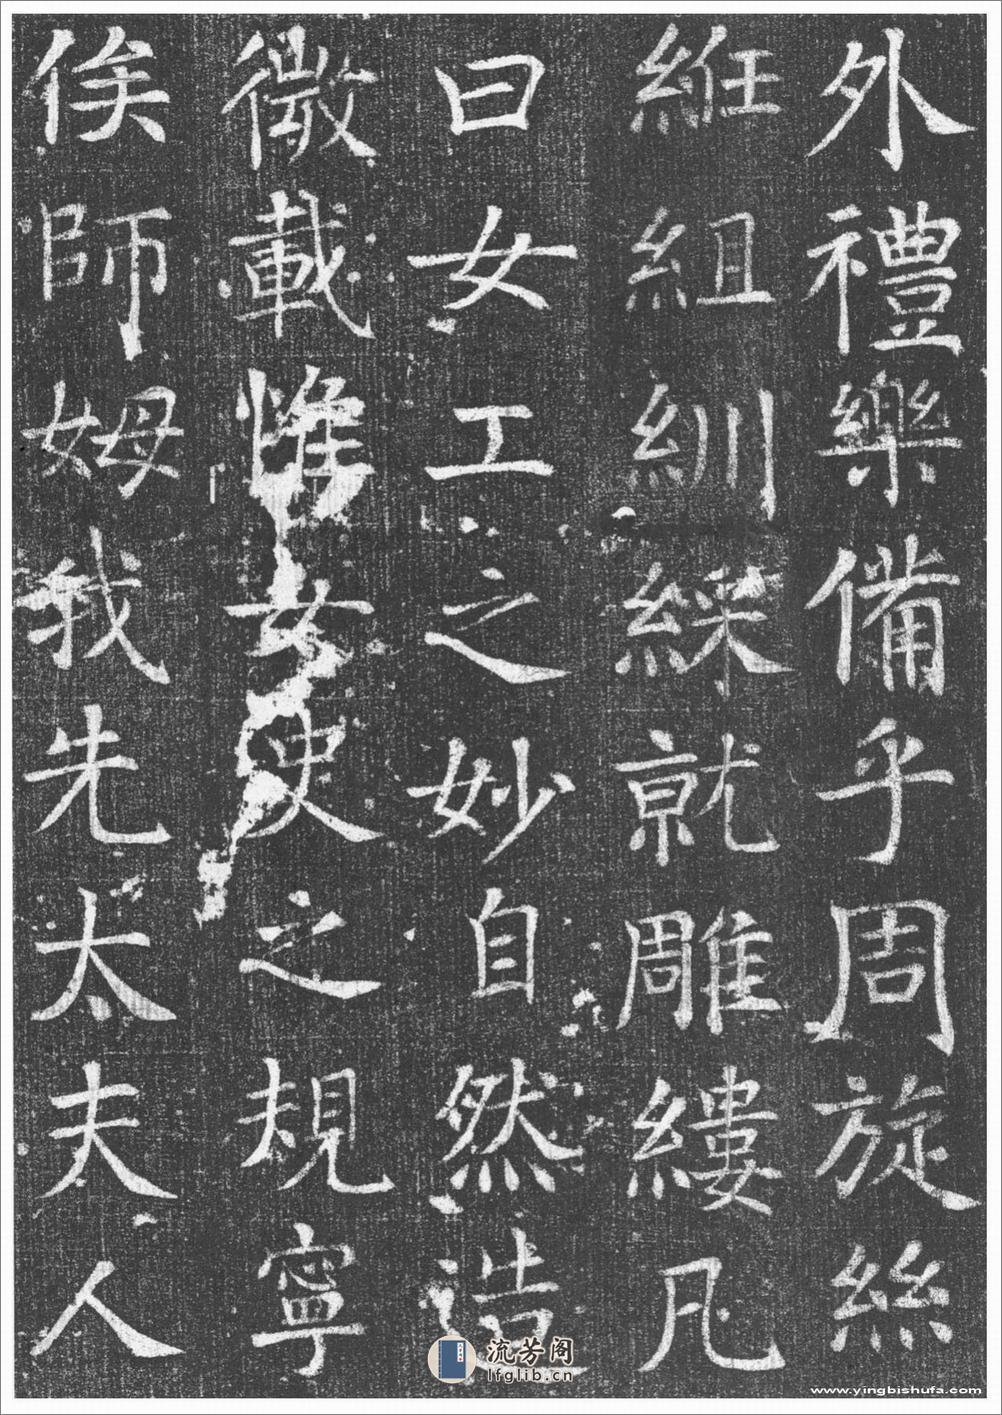 外禮樂備乎周旋絲
紝組紃綵就雕縷凡
曰女工之妙自然造
微載惟女史之規寧
俟師姆我先太夫人
流芳阁
lfglib.cn
www.yingbishufa.com